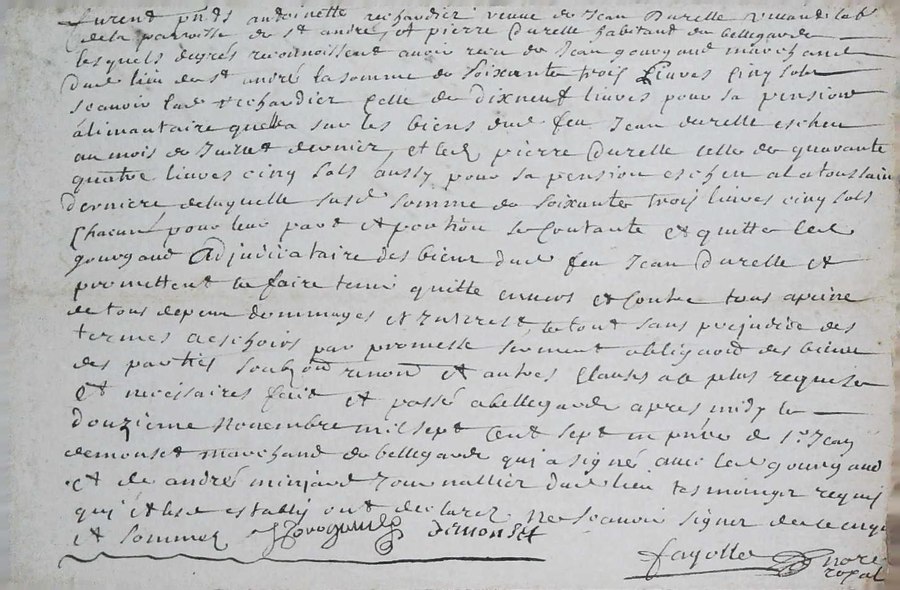 furent pnts antoinette rechandier veuve de Jean Durelle vivand lab
de la parroisse de st andré, et pierre durelle habitant du bellegarde
lesquels de grés reconnoissent avoir receu de Jean gouygaud marchand
dud lieu de st andré la somme de soixante trois Livres cinq sols
scavoir lad rechandier celle de dixneuf livres pour sa pension
alimantaire quelle a sur les biens dud feu Jean durelle escheu
au mois de Juillet dernier, et led pierre Durelle celle de quarante
quatre livres cinq sols aussy pour sa pension escheu a la toussain
derniere de laquelle susd somme de soixante trois livres cinq sols
Chacun pour leur part et portion se Contante et quitte led
gouygaud Adjudicataire des biens dud feu Jean Durelle et
promettent le faire tenir quitte envers et Contre tous a peine
de tous depens dommages et Interest, le tout sans prejudice des
termes a eschoirs par promesse serment obligaon des biens
des parties soubzon renon et autres Clauses a ce plus requises
et necessaires fait et passé a bellegarde apres midy le
douzieme Novembre mil sept Cent sept en pnce de Sr Jean
demonset marchand de bellegarde qui a signé avec led gouygaud
et de andré minjard Journallier dud lieu tesmoinger requis
qui et les establis ont declarez Ne scavoir signer de ce enqs
et sommez demonset
fayolle nore
royal